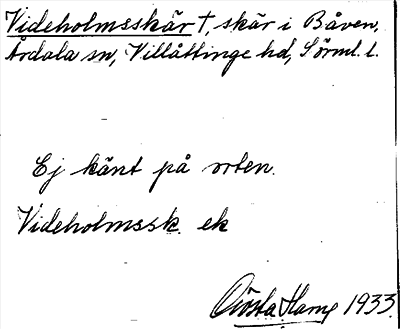 Videholmsskär †, skär i Båven,
Årdala sn, Villåttinge hd, Sörml. l.
Ej känt på orten.
Videholmssk. ek
Gösta Harne 1933.